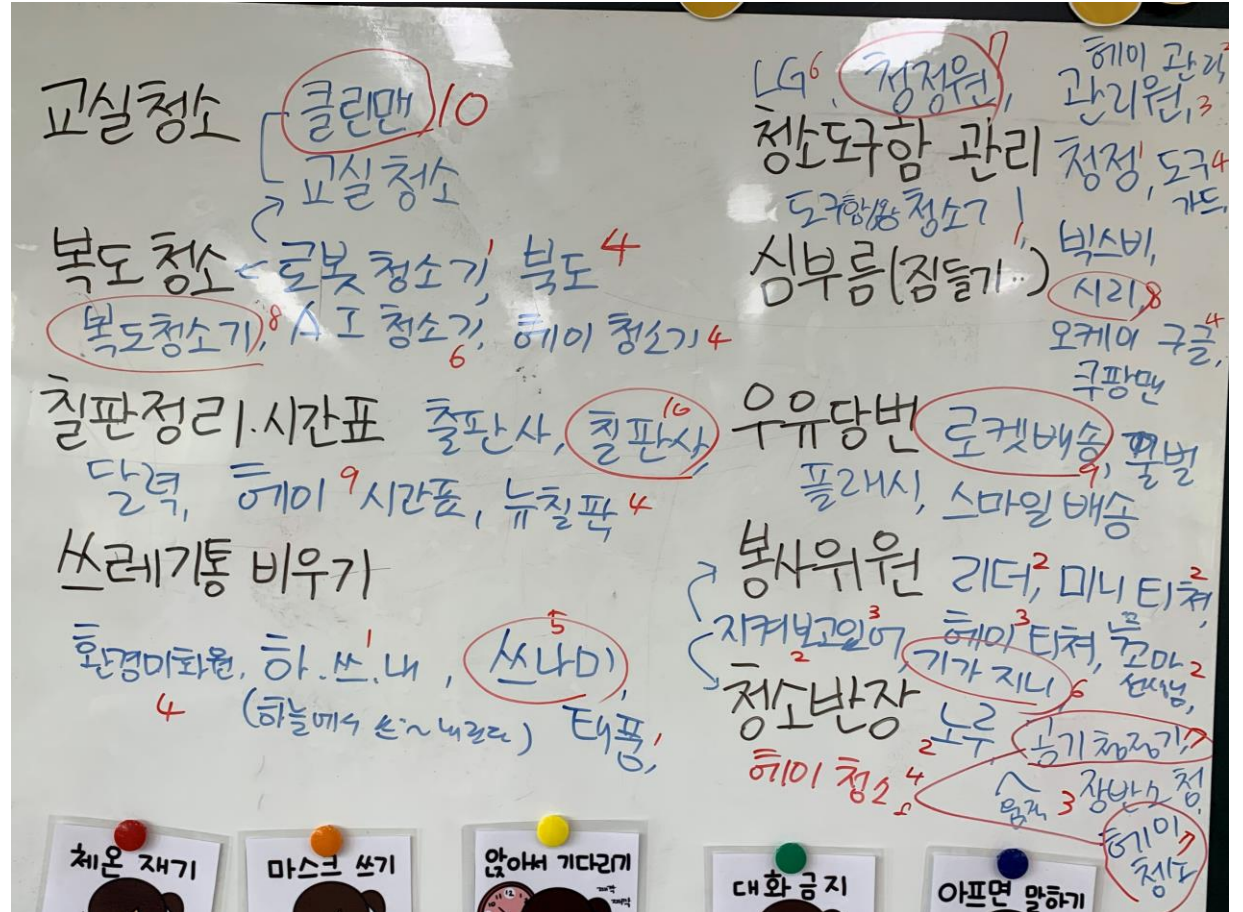 교실청소 클린맨 10
교실 청소
복도 청소 로봇 청소기, 1 북도 4
복도청소기, 8 AI 청소기, 6 헤이 청소기 4
칠판정리.시간표 출판사, 칠판사, 10
달력, 헤이 9 시간표, 뉴칠판 4
쓰레기통 비우기
환경미화원, 4 하.쓰.내, 1 쓰나미, 5
(하늘에서 쓰~ 내린다) 태풍, 1
LG 6, 청정원, 7 헤이 관리, 2
관리원, 3
청소도구함 관리 청정, 1 도구 4
가드,
도구함용 청소기 1
심부름(짐들기..) 빅스비,
시리, 8
오케이 구글, 4
쿠팡맨
우유당번 로켓배송, 9 꿀벌
플래시, 스마일 배송
봉사위원 리더, 2 미니 티쳐, 2
지켜보고있어, 3 헤이 티쳐, 3 꼬마 2
선생님,
2 기가 지니 6
청소반장 노루, 2 공기청정기, 7
헤이 청소 4
움직 3 장반소청
헤이 7
청소
체온 재기
마스크 쓰기
앉아서 기다리기
째깍
째깍
대화 금지
아프면 말하기